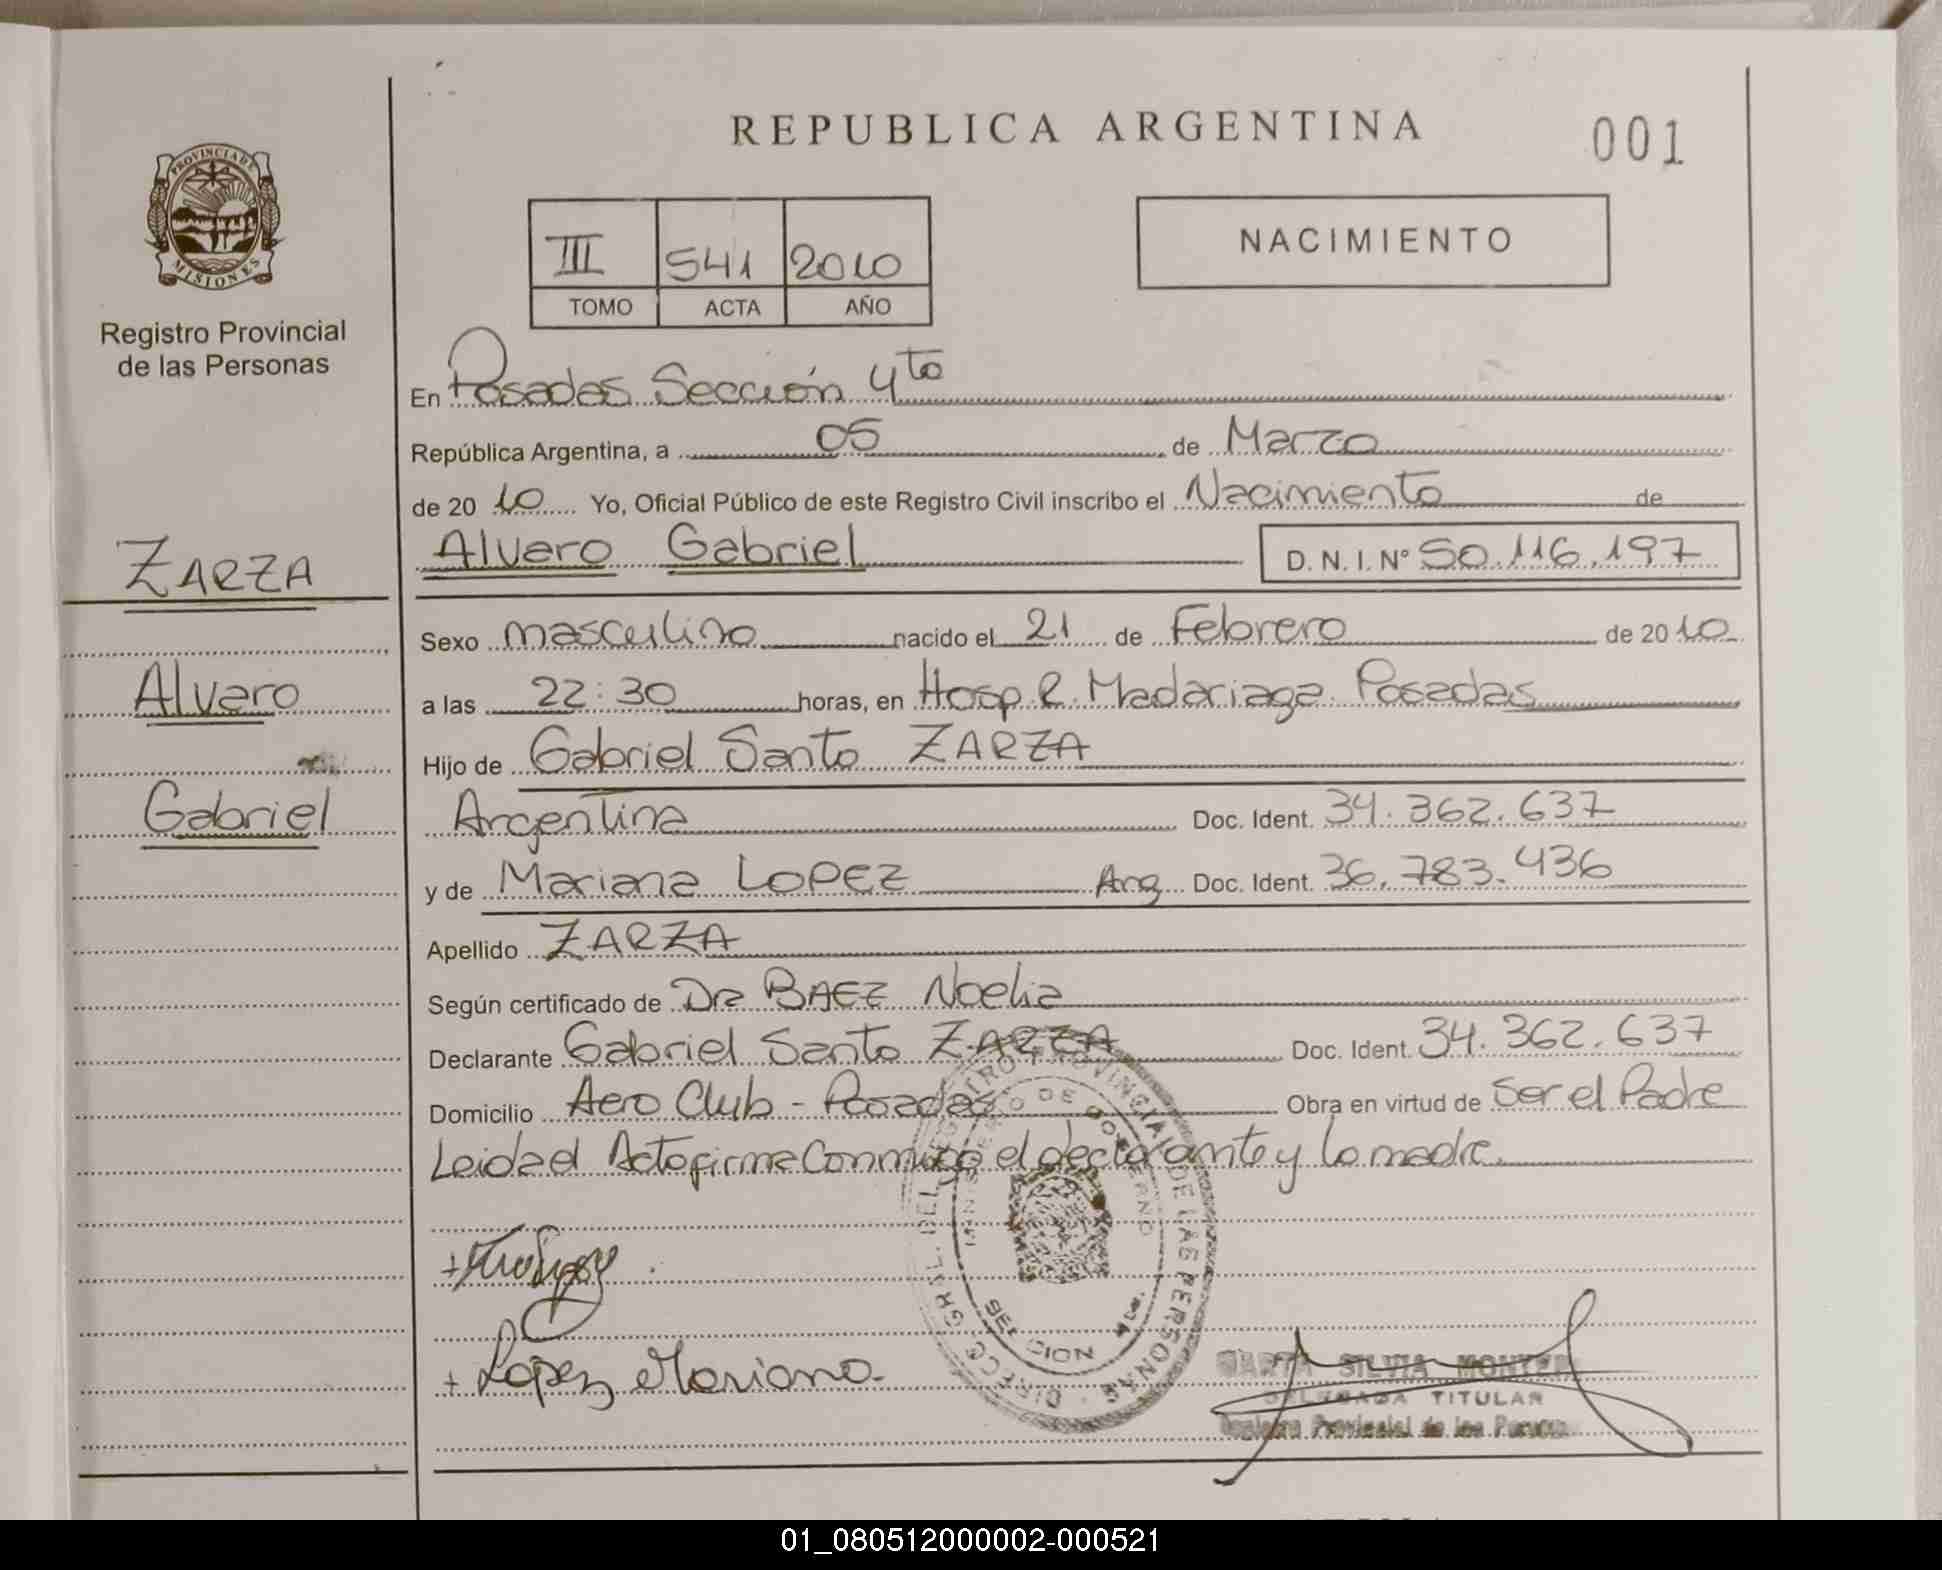 REPUBLICA ARGENTINA
001
PROVINCIA DE
MISIONES
Registro Provincial
de las Personas
III 541 2010
TOMO ACTA AÑO
NACIMIENTO
En Posadas Sección 4to
República Argentina, a 05 de Marzo
de 2010 Yo, Oficial Público de este Registro Civil inscribo el Nacimiento de
Alvaro Gabriel D. N. I. Nº 50.116.197
ZARZA
Alvaro
Gabriel
Sexo masculino nacido el 21 de Febrero de 2010
a las 22:30 horas, en Hosp R. Madariaga Posadas
Hijo de Gabriel Santo ZARZA
Argentina Doc. Ident. 34.362.637
y de Mariana LOPEZ Arg Doc. Ident. 36.783.436
Apellido ZARZA
Según certificado de Dra BAEZ Noelia
Declarante Gabriel Santo ZARZA Doc. Ident. 34.362.637
Domicilio Aero Club - Posadas Obra en virtud de Ser el Padre
Leidael Acta firma Conmigo el declarante y la madre.
DIRECC. GRAL. DEL REGISTRO PROVINCIAL DE LAS PERSONAS
MINISTERIO DE GOBIERNO
+ Lopez Mariana.
MARTA SILVIA
DELEGADA TITULAR
Registro Provincial de las Personas
01_080512000002-000521